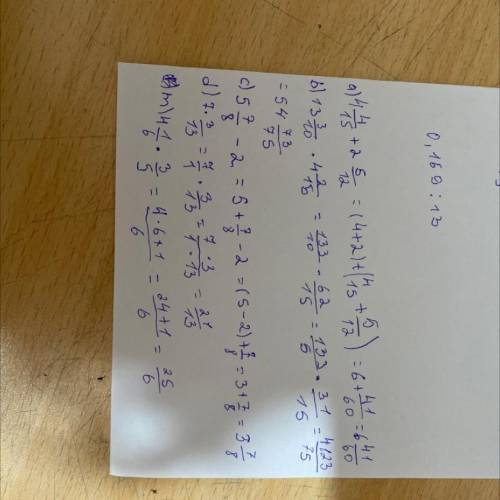 0,169 : 13
a) 4 4/15 + 2 5/12 = (4+2)+(4/15 + 5/12) = 6 + 41/60 = 6 41/60
b) 13 3/10 · 4 2/15 = 133/10 · 62/15 = 133/5 · 31/15 = 4123/75
= 54 73/75
c) 5 7/8 - 2 = 5 + 7/8 - 2 = (5-2) + 7/8 = 3 + 7/8 = 3 7/8
d) 7 · 3/13 = 7/1 · 3/13 = 7·3/1·13 = 21/13
m) 4 1/6 · 3/5 = 4·6+1/6 = 24+1/6 = 25/6